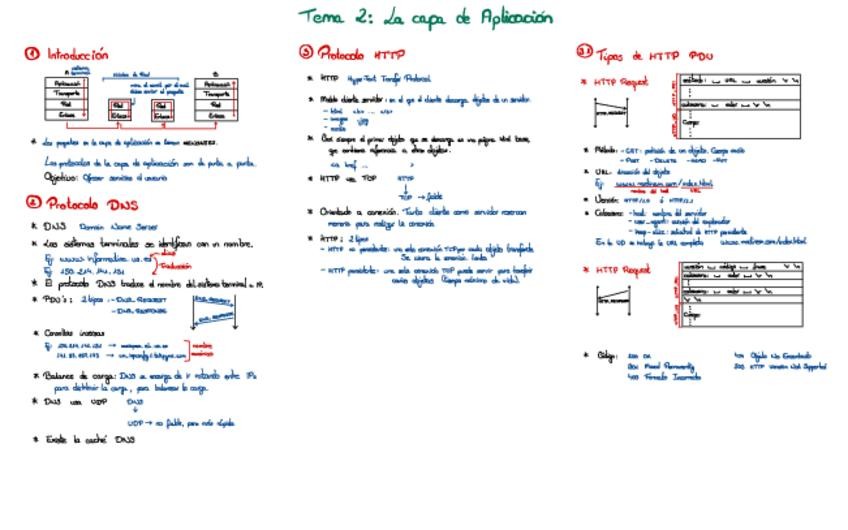 Tema 2: La capa de Aplicación
① Introducción
A
B
Aplicación
Transporte
Red
Enlace
Red
Enlace
Red
Enlace
Aplicación
Transporte
Red
Enlace
* Los paquetes en la capa de aplicación se llaman MENSAJES.
Los protocolos de la capa de aplicación son de punta a punta.
Objetivo: Ofrecer servicios al usuario
② Protocolo DNS
* DNS Domain Name Server
* Los sistemas terminales se identifican con un nombre.
Ej: www.informatica.us.es
Ej: 150.214.141.131
Traducción
* El protocolo DNS traduce el nombre del sistema terminal a IP.
* PDU's: 2 tipos: - DNS_REQUEST
- DNS_RESPONSE
* Consultas inversas
nombre
* Balance de carga: DNS se encarga de ir rotando entre IPs
para distribuir la carga, para balancear la carga.
* DNS usa UDP DNS
↓
UDP → no fiable, pero más rápido
* Existe la caché DNS
③ Protocolo HTTP
* HTTP HyperText Transfer Protocol
* Modelo cliente servidor: en el que el cliente descarga objetos de un servidor.
- html
- imagen
* Casi siempre el primer objeto que se descarga es una página html base,
que contiene referencias a otros objetos.
<a href ... >
* HTTP usa TCP HTTP
↓
TCP → fiable
* Orientado a conexión. Tanto cliente como servidor reservan
memoria para realizar la conexión.
* HTTP: 2 tipos
- HTTP no persistente: una sola conexión TCP por cada objeto transferido
Se cierra la conexión
- HTTP persistente: una sola conexión TCP puede servir para transferir
varios objetos (tiempo máximo de vida).
3.1 Tipos de HTTP PDU
* HTTP Request
método URL versión
cabecera: valor
Cuerpo
* Método: - GET: petición de un objeto. Cuerpo vacío
- POST - DELETE - HEAD - PUT
* URL: dirección del objeto
Ej: /index.html
URL
* Versión: HTTP/1.0 ó HTTP/1.1
* Cabeceras: - host: nombre del servidor
- user_agent: versión del explorador
- keep-alive: solicitud de HTTP persistente
* HTTP Request
versión código frase
cabecera: valor
Cuerpo
* Código: 200 OK
301 Moved Permanently
400 Formato Incorrecto
404 Objeto No Encontrado
505 HTTP Version Not Supported